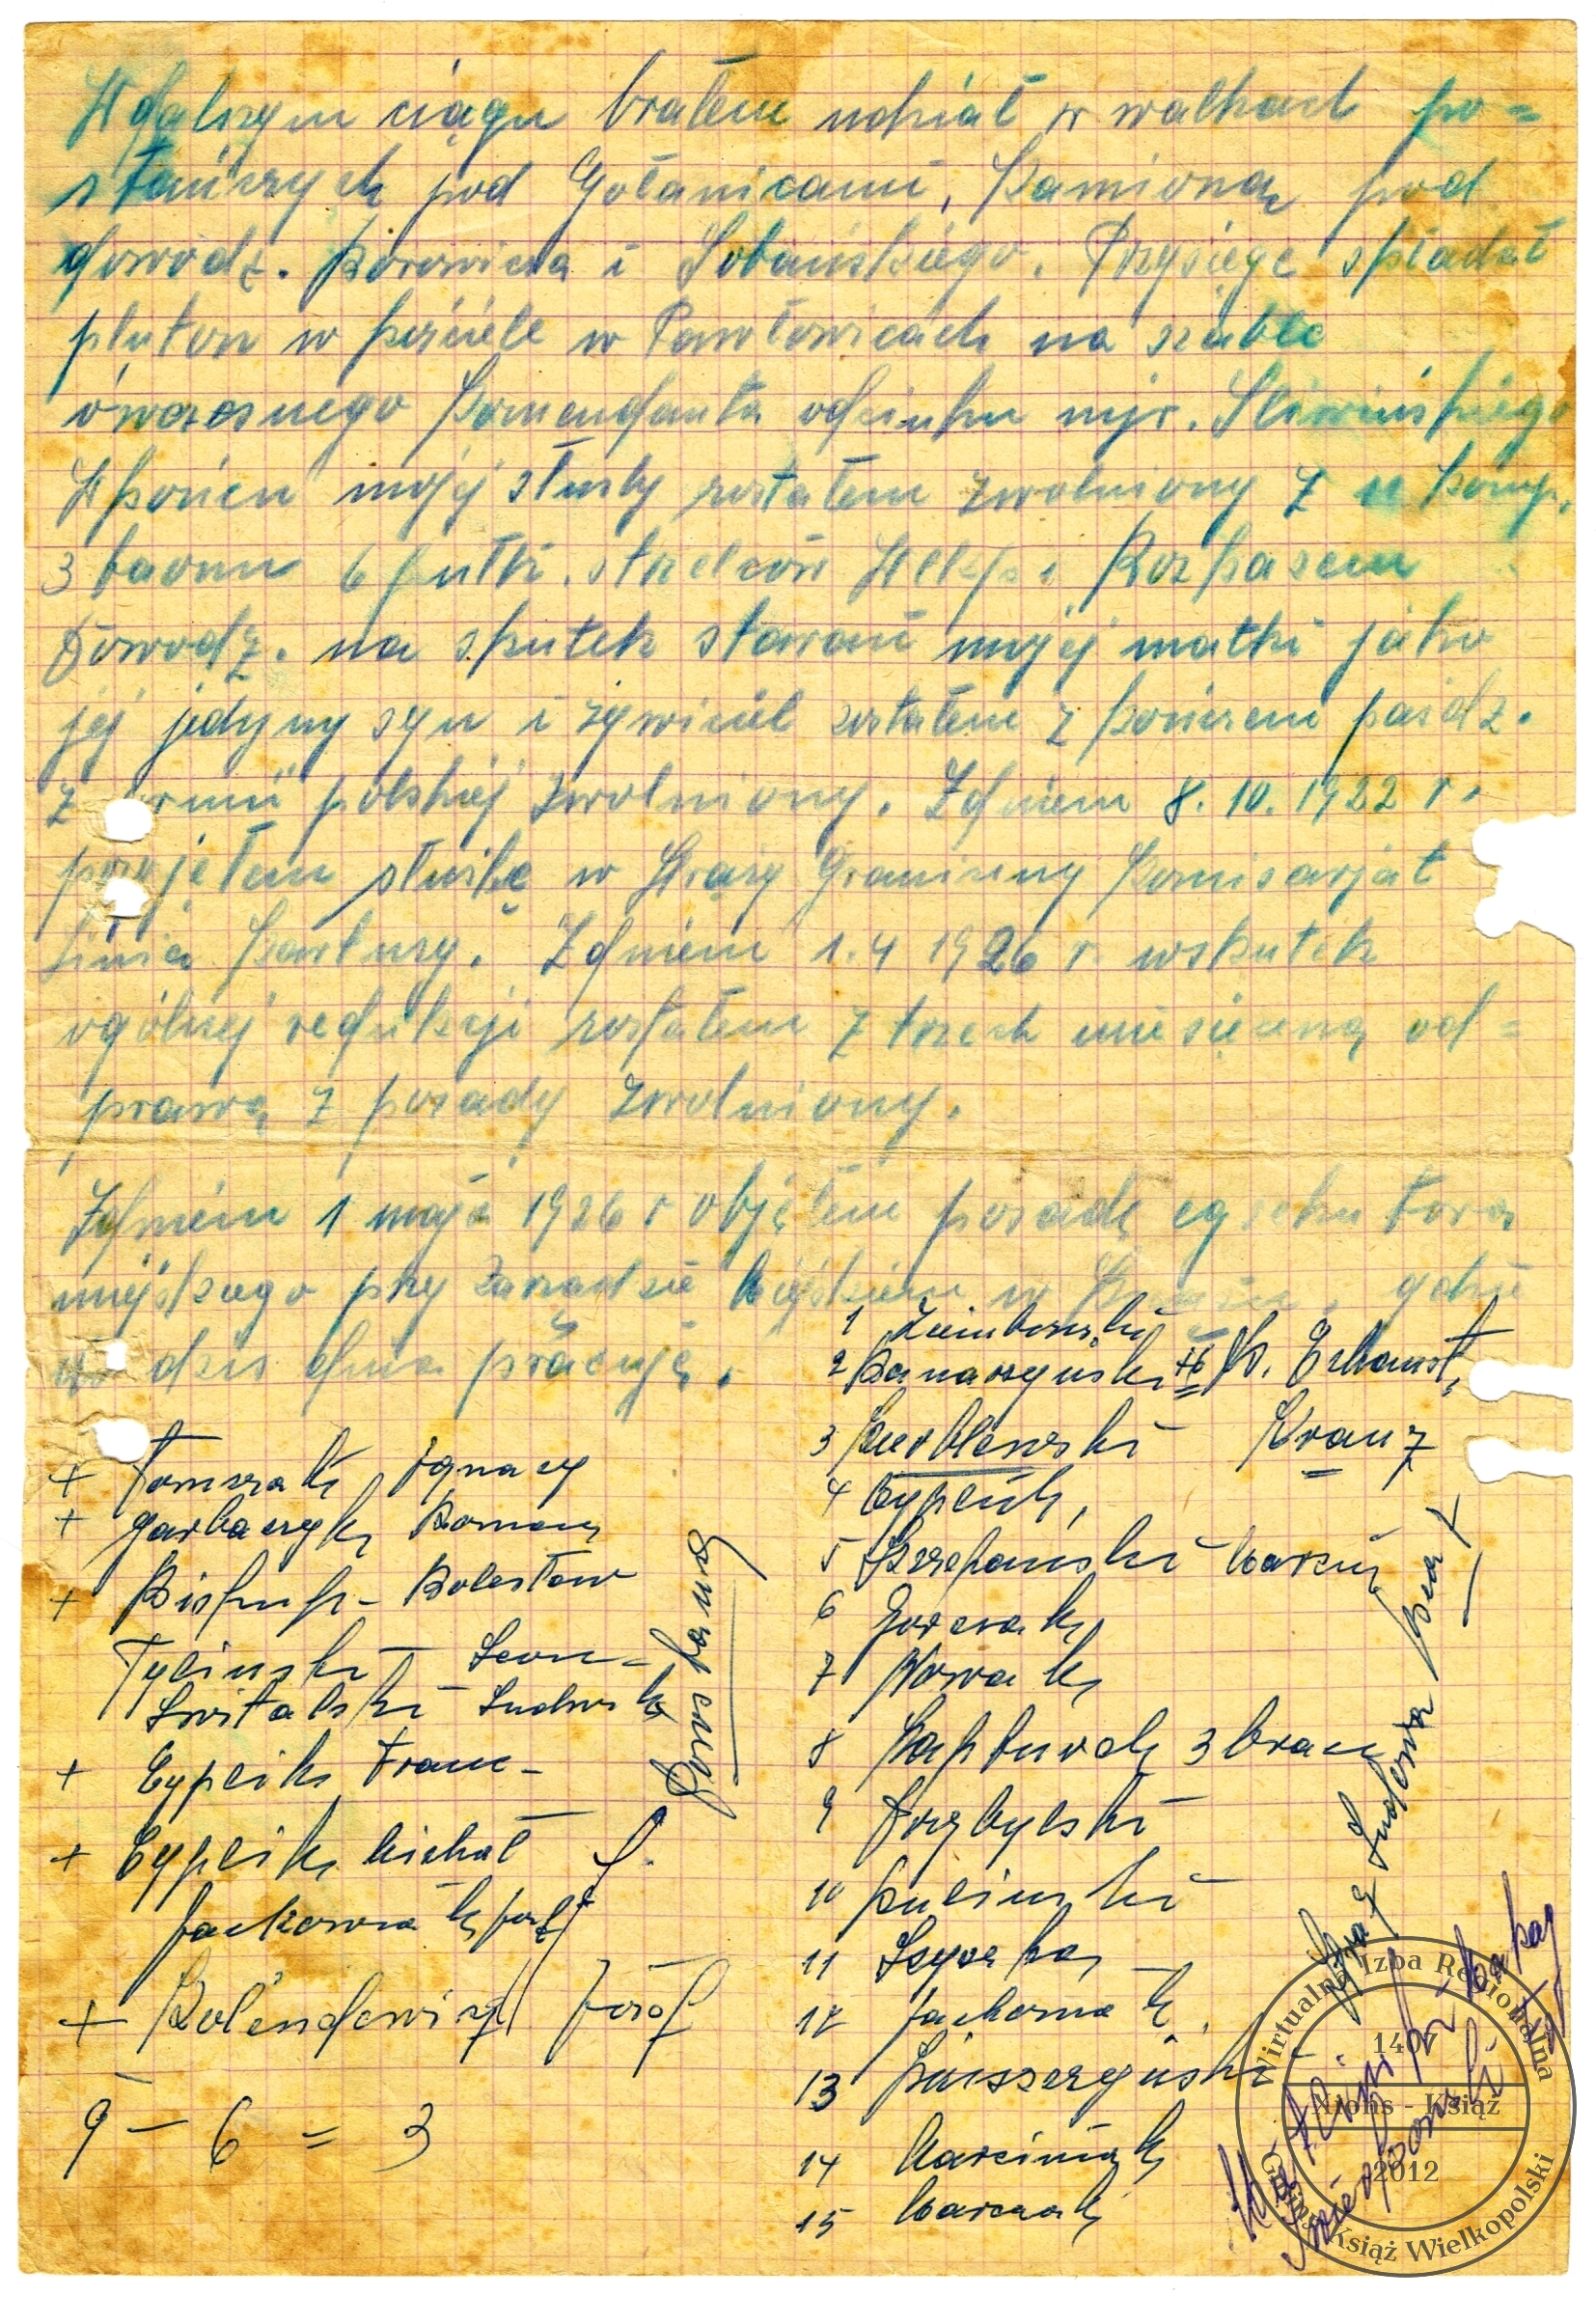 W dalszym ciągu brałem udział w walkach po=
stańczych pod Gołanicami, Kamioną pod
dowodz. Borowicza i Sobańskiego. Przysięgę składał
pluton w kościele w Pawłowicach na szable
ówczesnego Komendanta odcinku mjr. Śliwińskiego
W końcu mojej służby zostałem zwolniony z komp.
3 baonu 6 pułk. strzelców Wlkp. Rozkazem
Dowodz. na skutek starań mojej matki jako
jej jedyny syn i żywiciel zostałem z końcem paźdz.
z armii polskiej zwolniony. Z dniem 8. 10. 1922 r.
przyjąłem służbę w Straży Graniczny Komisarjat
Linia Kartuzy. Z dniem 1. 4 1926 r. wskutek
ogólnej redukcji zostałem z trzech miesięczną od=
prawą z posady zwolniony.
Z dniem 1 maja 1926 r objąłem posadę egzekutora
miejskiego przy Zarządzie Miejskiem w Książu, gdzie
do dziś dnia pracuję.
+ Tomczak Ignacy
+ Garbarczyk Roman
+ Biskup - Bolesław
Tyliński - Leon -
Świtalski Ludwik
+ Cyplik Franc -
+ Cyplik Michał
Jackowiak
+ Rolendowicz Józef
9 - 6 = 3
2 St. Erhaust,
3 Kranz
4 Cyplik,
5 Szczepański Marcin
6 Gorczak
7 Nowak
8 Kapturek 3 bram
9 Przybylski
10 Puliński
11
12 Jackowiak.
13
14 Marciniak
15 Marczak
Ludowa
Wirtualna Izba Regionalna
1407
Xions - Książ
2012
Gminy Książ Wielkopolski